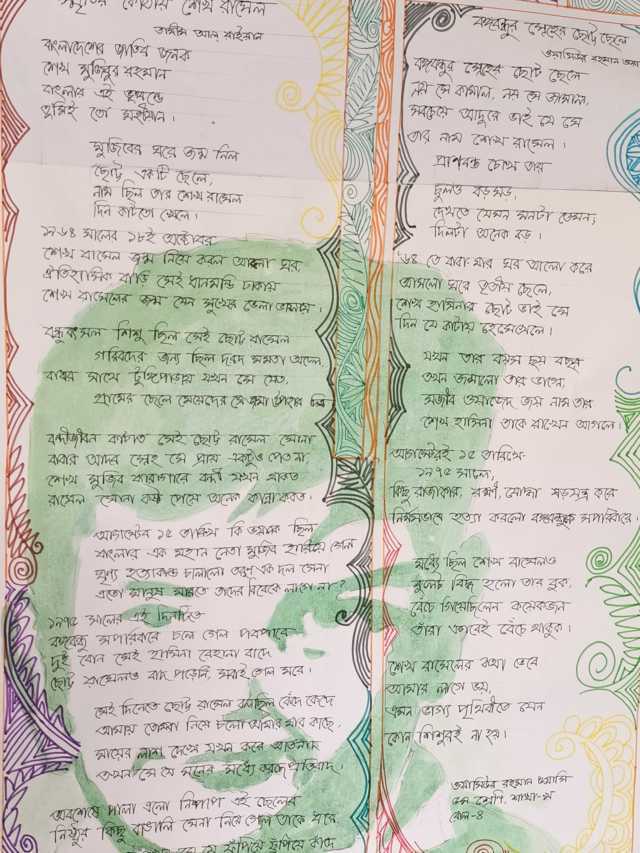 স্মৃতির কোঠায় শেখ রাসেল
তামীম আল রাইয়ান
বাংলাদেশের জাতির জনক
শেখ মুজিবুর রহমান
বাংলার এই ভূখন্ডে
তুমিই তো মহীয়ান।
মুজিবের ঘরে জন্ম নিল
ছোট্ট একটি ছেলে,
নাম ছিল তার শেখ রাসেল
দিন কাটতো খেলে।
১৯৬৪ সালের ১৮ই অক্টোবর
শেখ রাসেল জন্ম নিয়ে করল আলো ঘর,
ঐতিহাসিক বাড়ি সেই ধানমন্ডি ঢাকায়
শেখ রাসেলের জন্ম যেন সুখের ভেলা ভাসায়।
বন্ধুবৎসল শিশু ছিল সেই ছোট্ট রাসেল
গরিবদের জন্য ছিল দরদ মমতা অঢেল,
বাবার সাথে টুঙ্গিপাড়ায় যখন সে যেত,
গ্রামের ছেলে মেয়েদের সে জামা উপহার দিত
বন্দীজীবন কাটাত সেই ছোট্ট রাসেল সোনা
বাবার আদর স্নেহ সে প্রায় একটুও পেত না
শেখ মুজিব কারাগারে বন্দী যখন থাকত
রাসেল সোনা কষ্ট পেয়ে অনেক কান্না করত।
আগস্টের ১৫ তারিখ কি ভয়ানক ছিল
বাংলার এক মহান নেতা মুজিব হারিয়ে গেল
ঘৃণ্য হত্যাকান্ড চালালো অল্প এক দল সেনা
এতো মানুষ মারতে তাদের বিবেকে লাগে না?
১৯৭৫ সালের এই দিনটিতে
বঙ্গবন্ধু সপরিবারে চলে গেল পরপারে
দুই বোন সেই হাসিনা রেহানা বাদে
ছোট্ট রাসেলও বাদ পড়েনি, সবাই গেল মরে।
সেই দিনেতে ছোট্ট রাসেল বলেছিল কেঁদে কেঁদে
আমায় তোমরা নিয়ে চলো আমার মার কাছে,
মায়ের লাশ দেখে যখন করে আর্তনাদ
তখন সে যে মনের মধ্যে করছে প্রতিবাদ।
অবশেষে পালা এলো নিষ্পাপ এই ছেলের
নিষ্ঠুর কিছু বাঙালি সেনা নিয়ে গেল তাকে ধরে
সে যে ফাঁপিয়ে ফুঁপিয়ে কাঁদে
বঙ্গবন্ধুর স্নেহের ছোট্ট ছেলে
ওয়াসিউর রহমান
বঙ্গবন্ধুর স্নেহের ছোট ছেলে
নয় সে কামাল, নয় সে জামাল,
সবচেয়ে আদুরে ভাই যে সে
তার নাম শেখ রাসেল।
প্রাণবন্ত চোখ তার
চুলও বড়সড়,
দেখতে যেমন মনটা তেমন,
দিলটা অনেক বড়।
'৬৪ তে বাবা-মার ঘর আলো করে
আসলো ঘরে তৃতীয় ছেলে,
শেখ হাসিনার ছোট ভাই সে
দিন যে কাটায় হেসেখেলে।
যখন তার বয়স ছয় বছর
তখন জন্মালো তার ভাগ্নে,
সজীব ওয়াজেদ জয় নাম তার
শেখ হাসিনা তাকে রাখেন আগলে।
আগস্টেরই ১৫ তারিখে
১৯৭৫ সালে,
কিছু রাজাকার, বর্বর, মোল্লা ষড়যন্ত্র করে
নির্মমভাবে হত্যা করলো বঙ্গবন্ধুকে সপরিবারে।
মধ্যে ছিল শেখ রাসেলও
বুলেট বিদ্ধ হলো তার বুক,
বেঁচে গিয়েছিলেন কয়েকজন
তাঁরা এভাবেই বেঁচে থাকুক।
শেখ রাসেলের কথা ভেবে
আমার লাগে ভয়,
এমন ভাগ্য পৃথিবীতে যেন
কোন শিশুরই না হয়।
ওয়াসিউর রহমান ওয়াসি
শ্রেণি, শাখা-খ
রোল-৪